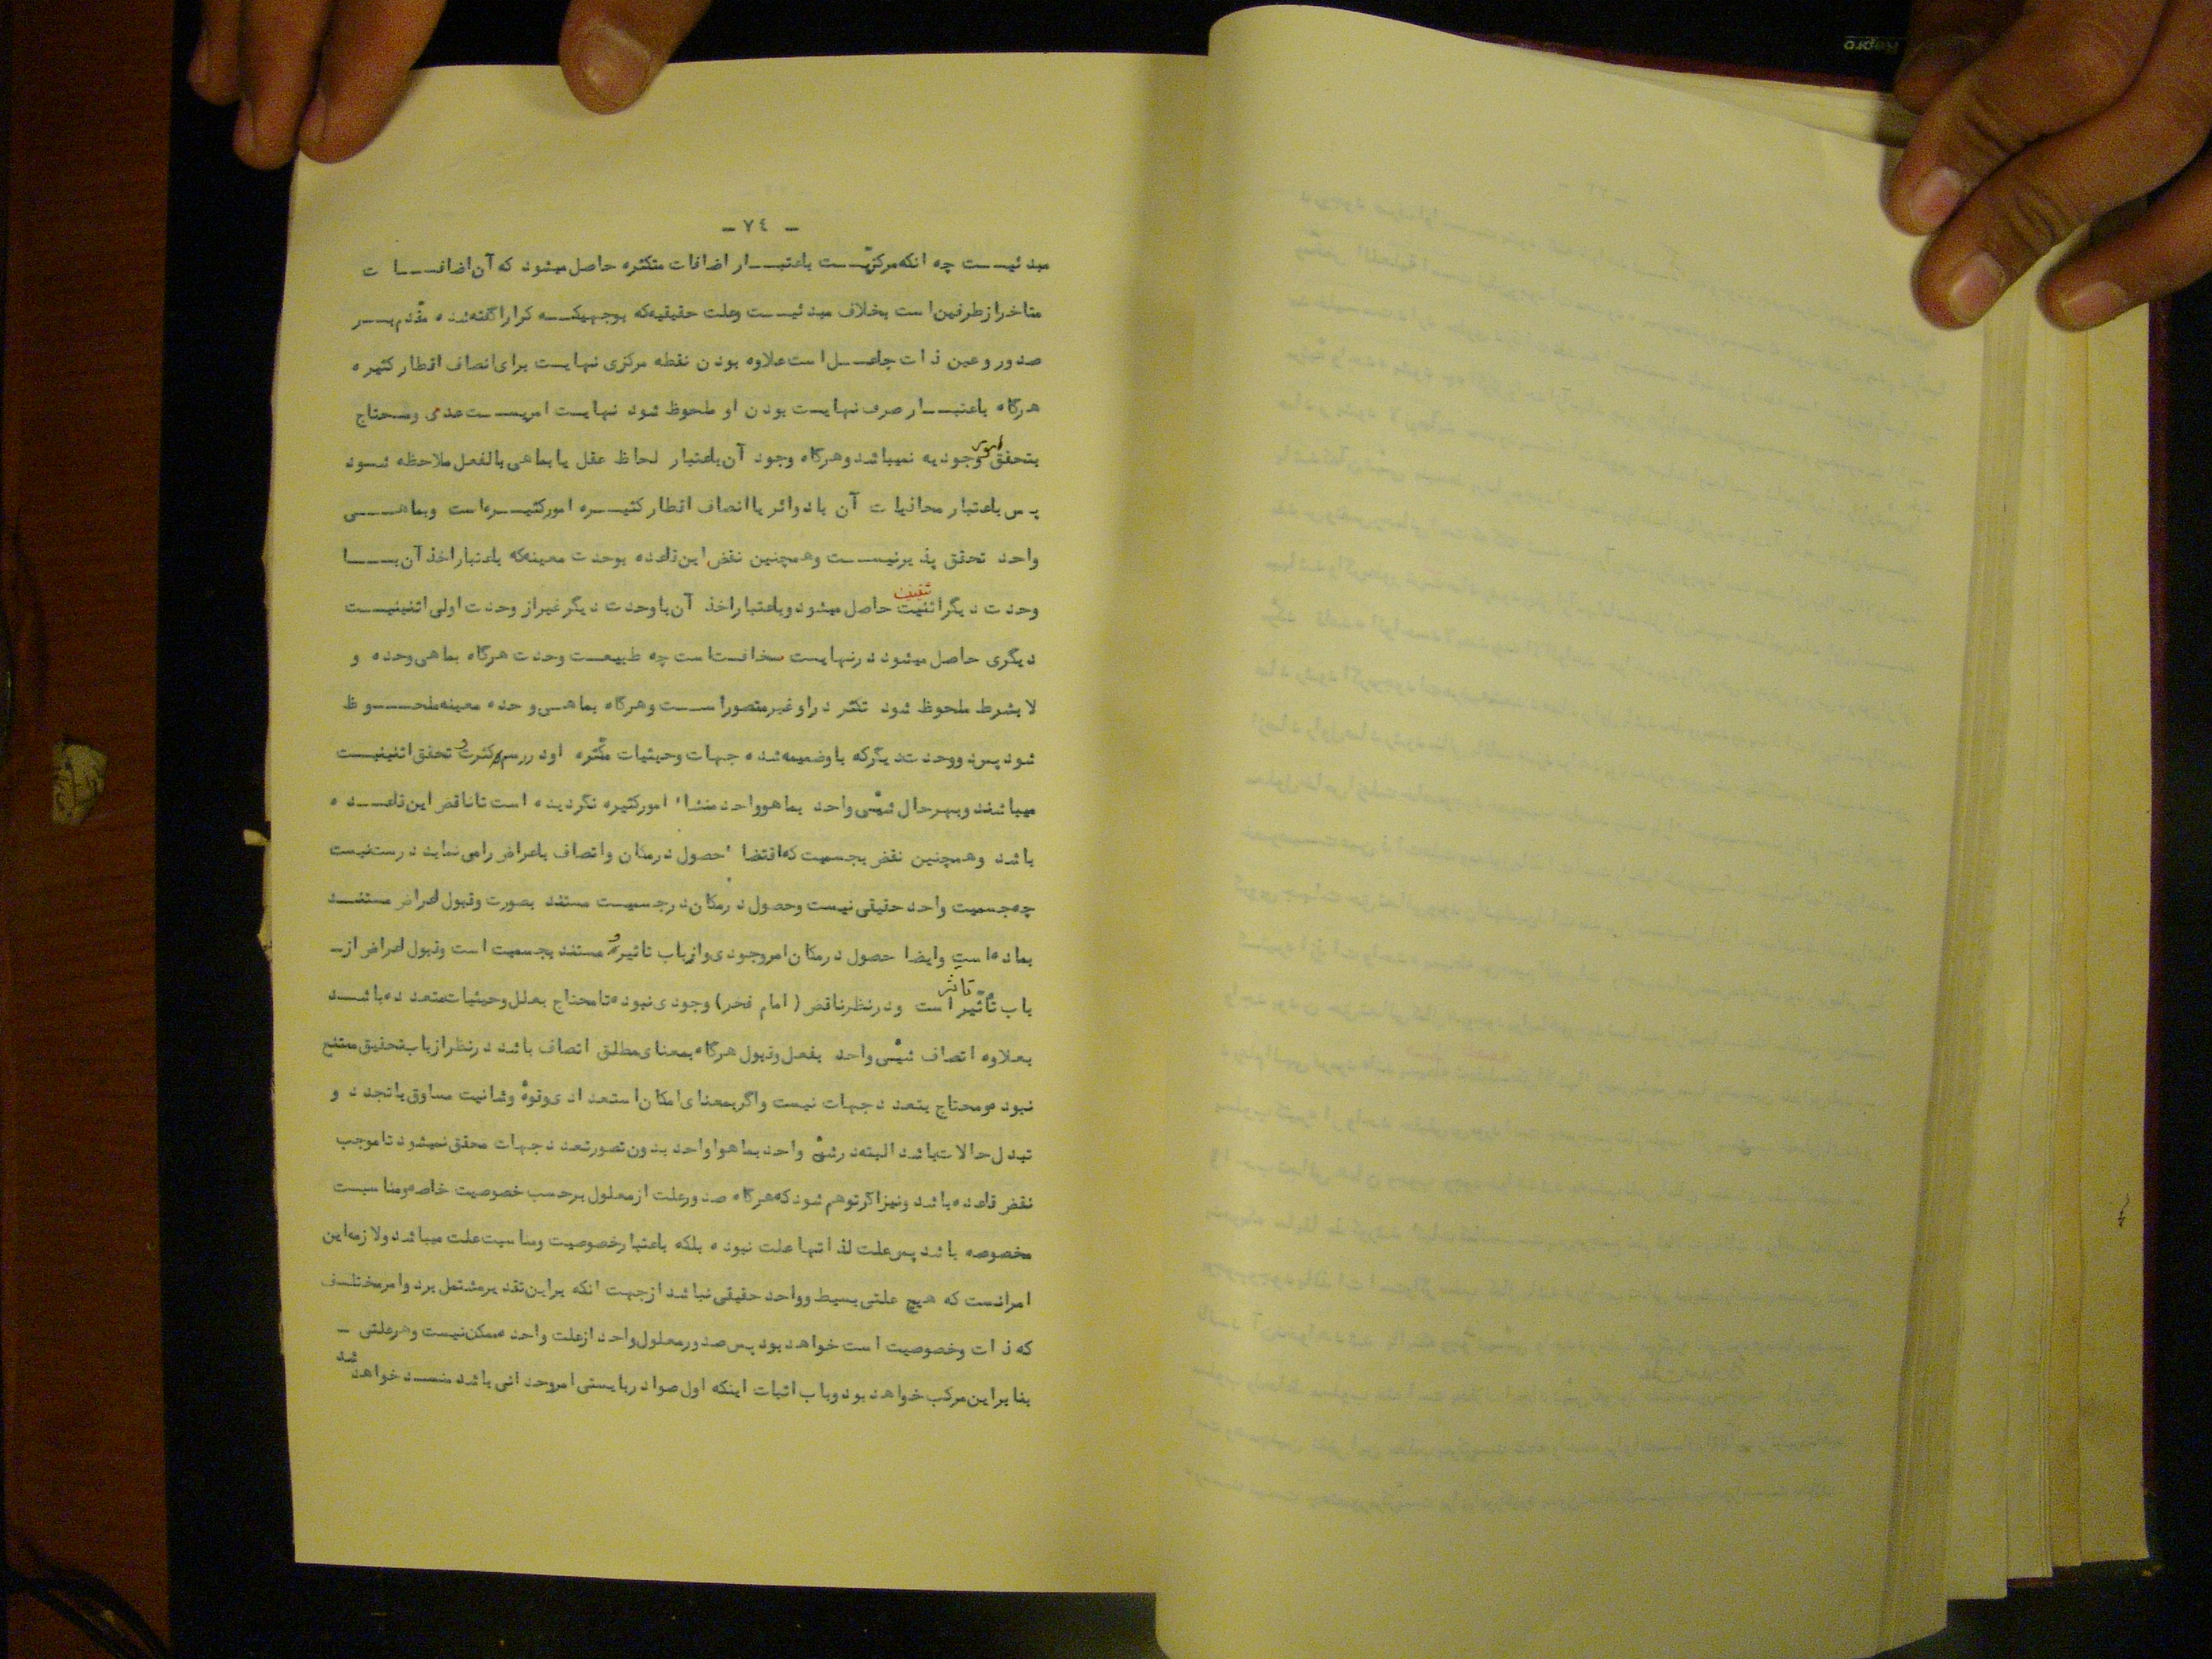 - ٧٤ -
مبدئیست چه انکه مرکزیّت باعتبار اضافات متکثره حاصل میشود که آن اضافات
متاخر از طرفین است بخلاف مبدئیست وعلت حقیقیه که بوجهیکه کرارا گفته شده مقّدم بر
صدور وعین ذات جاعل است علاوه بودن نقطه مرکزی نهایت برای انصاف اقطار کثیره
هرگاه باعتبار صرف نهایت بودن او ملحوظ شود نهایت امریست عدمی ومحتاج
بتحقق امور وجودیه نمیباشد وهرگاه وجود آن باعتبار لحاظ عقل یا بماهی بالفعل ملاحظه شود
پس باعتبار محاذیات آن با دوائر یا انصاف اقطار کثیره امور کثیره است وبماهی
واحد تحقق پذیر نیست وهمچنین نقض این قاعده بوحدت معینه که باعتبار اخذ آن با
وحدت دیگر اثنیت حاصل میشود وباعتبار اخذ آن با وحدت دیگر غیر از وحدت اولی اثنینیت
دیگری حاصل میشود در نهایت سخافت است چه طبیعت وحدت هرگاه بماهی وحده و
لا بشرط ملحوظ شود تکثر در او غیر متصور است وهرگاه بماهی وحده معینه ملحوظ
شود پس وحدت دیگر که با وضمیمه شده جهات وحیثیات مکّثره او در رسم کثرت و تحقق اثنینیت
میباشند وبهر حال شیئی واحد بما هو واحد منشاء امور کثیره نگردیده است تا ناقض این قاعده
باشد وهمچنین نقض بجسمیت که اقتضاء حصول در مکان واتصاف باعراض را می نماید درست نیست
چه جسمیت واحد حقیقی نیست وحصول در مکان در جسمیت مستند بصورت وقبول اعراض مستند
بماده است وایضا حصول در مکان امر وجودی واز باب تاثیر و مستند بجسمیت است وقبول اعراض از-
باب تأثیر تاثر است ودر نظر ناقض (امام فخر) وجودی نبوده تا محتاج بعلل وحیثیات متعدده باشد
بعلاوه اتصاف شیئی واحد بفعل وقبول هرگاه بمعنای مطلق اتصاف باشد در نظر ارباب تحقیق ممتنع
نبوده ومحتاج بتعدد جهات نیست واگر بمعنای امکان استعدادی وقوهٔ وشانیت مساوق با تجدد و
تبدل حالات باشد البته در شیئی واحد بما هو واحد بدون تصور تعدد جهات محقق نمیشود تا موجب
نقض قاعده باشد ونیز اگر توهم شود که هرگاه صدور علت از معلول برحسب خصوصیت خاصه ومناسبت
مخصوصه باشد پس علت لذاتها علت نبوده بلکه باعتبار خصوصیت ومناسبت علت میباشد ولازمه این
امر انست که هیچ علتی بسیط وواحد حقیقی نباشد از جهت انکه براین تقدیر مشتمل بر دو امر مختلف
که ذات وخصوصیت است خواهد بود پس صدور معلول واحد از علت واحد ممکن نیست وهر علتی -
بنابراین مرکب خواهد بود وباب اثبات اینکه اول صوادر بایستی امر وحدانی باشد منسد خواهد شد